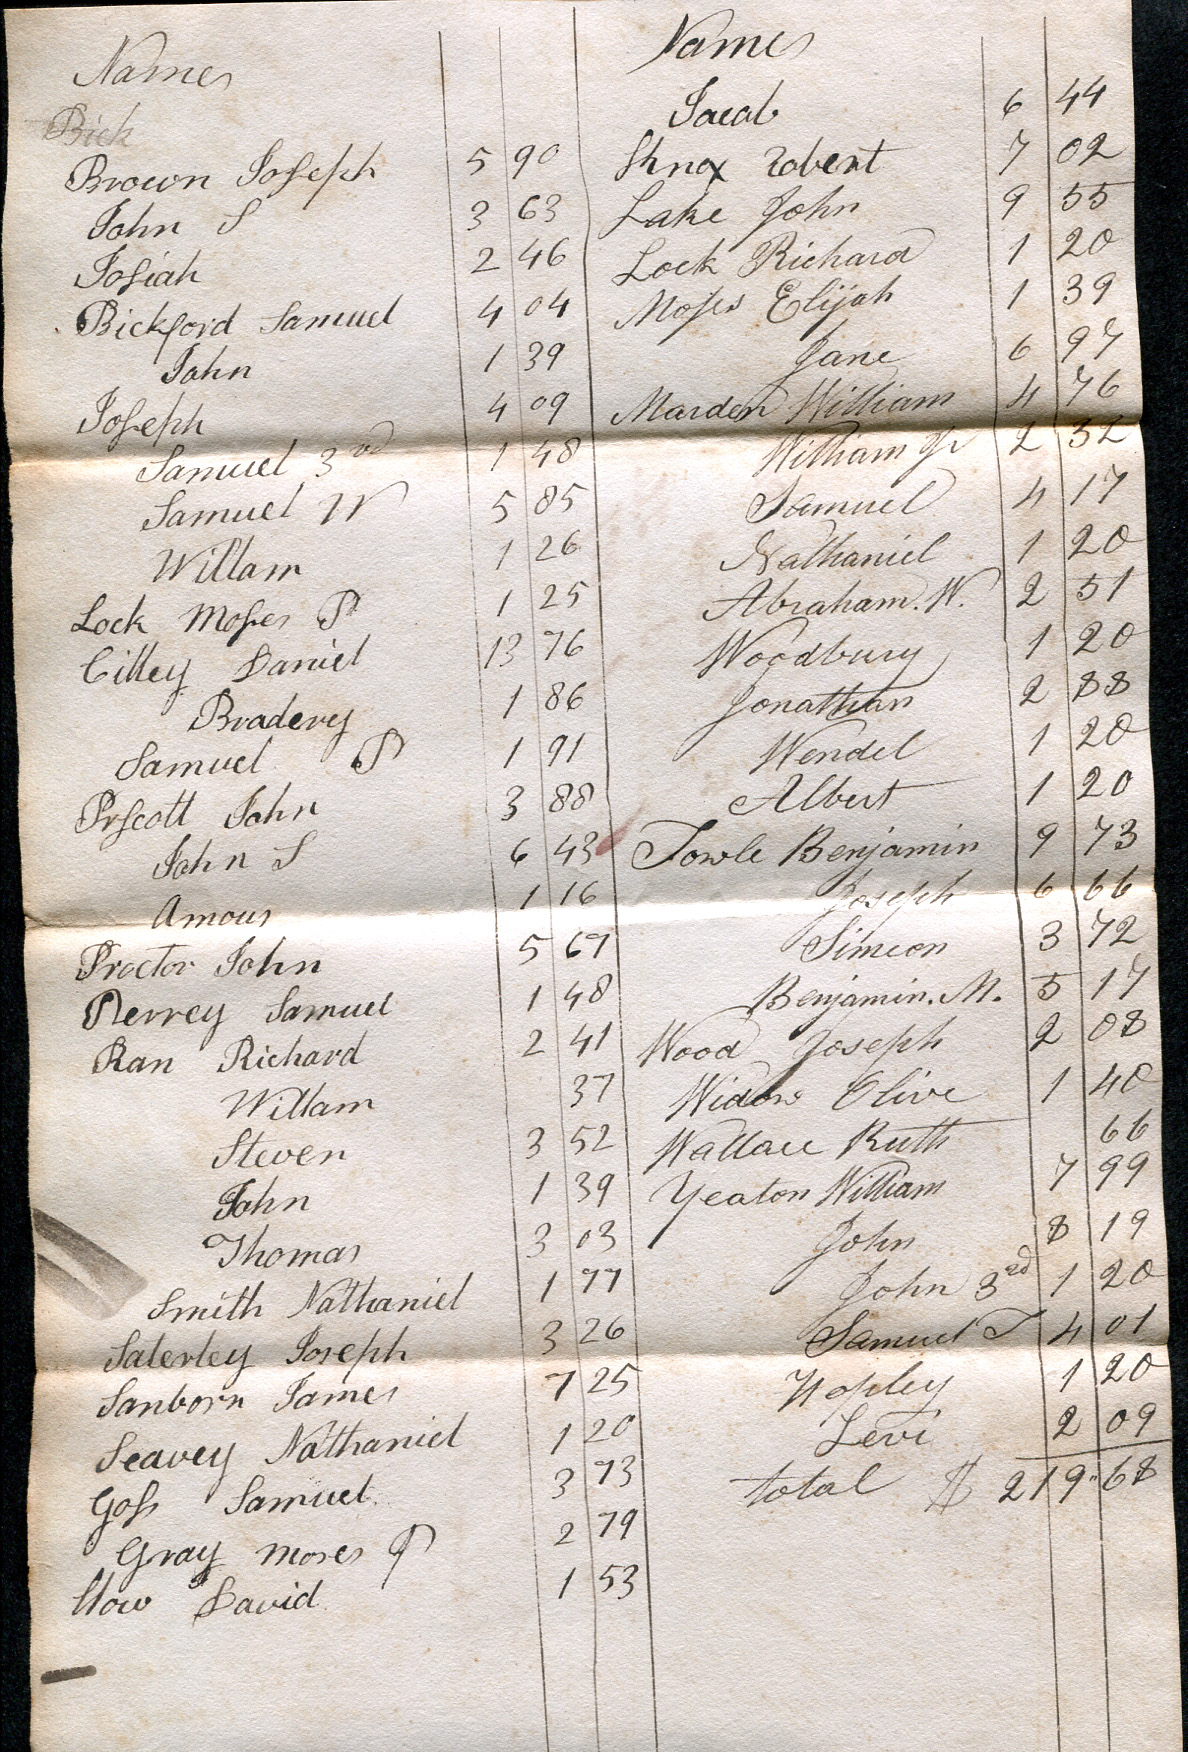 Names
Bick
Brown Joseph 5 90
John S 3 63
Josiah 2 46
Bickford Samuel 4 04
John 1 39
Joseph 4 09
Samuel 3rd 1 48
Samuel W 5 85
Willam 1 26
Lock Moses P 1 25
Cilley Daniel 13 76
Bradery 1 86
Samuel P 1 91
Prscott John 3 88
John S 6 43
Amous 1 16
Proctor John 5 67
Perrey Samuel 1 48
Ran Richard 2 41
Willam 37
Steven 3 52
John 1 39
Thomas 3 03
Smith Nathaniel 1 77
Saterley Joseph 3 26
Sanborn James 7 25
Seavey Nathaniel 1 20
Goss Samuel 3 73
Gray Moses P 2 79
How David 1 53
Names
Jacob 6 44
Knox Robert 7 02
Lake John 9 55
Lock Richard 1 20
Moses Elijah 1 39
Jane 6 97
Marden William 4 76
William Jr 2 32
Samuel 4 17
Nathaniel 1 20
Abraham. W. 2 51
Woodbury 1 20
Jonathan 2 88
Wendel 1 20
Albert 1 20
Towle Benjamin 9 73
Joseph 6 66
Simeon 3 72
Benjamin. M. 5 17
Wood Joseph 2 08
Widow Olive 1 40
Wallace Ruth 66
Yeaton William 7 99
John 8 19
John 3rd 1 20
Samuel T 4 01
Hopley 1 20
Levi 2 09
total $ 219"68